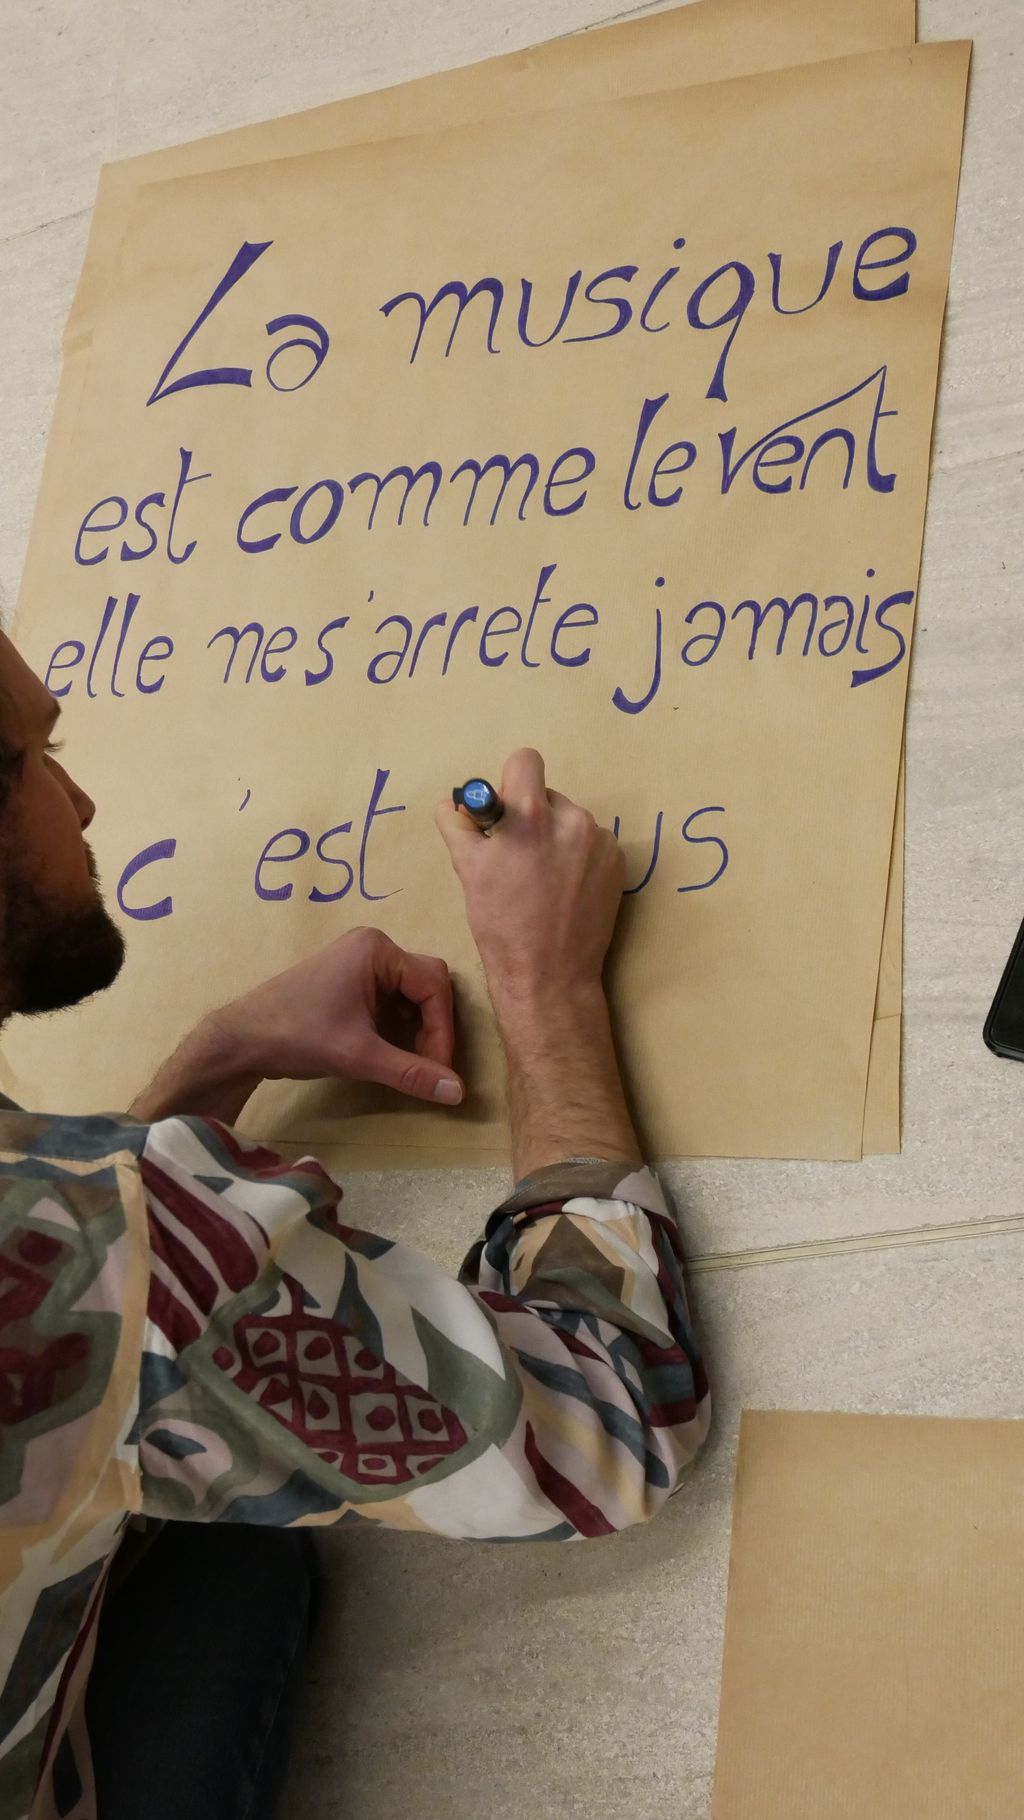 La musique
est comme le vent
elle ne s'arrete jamais
c'est